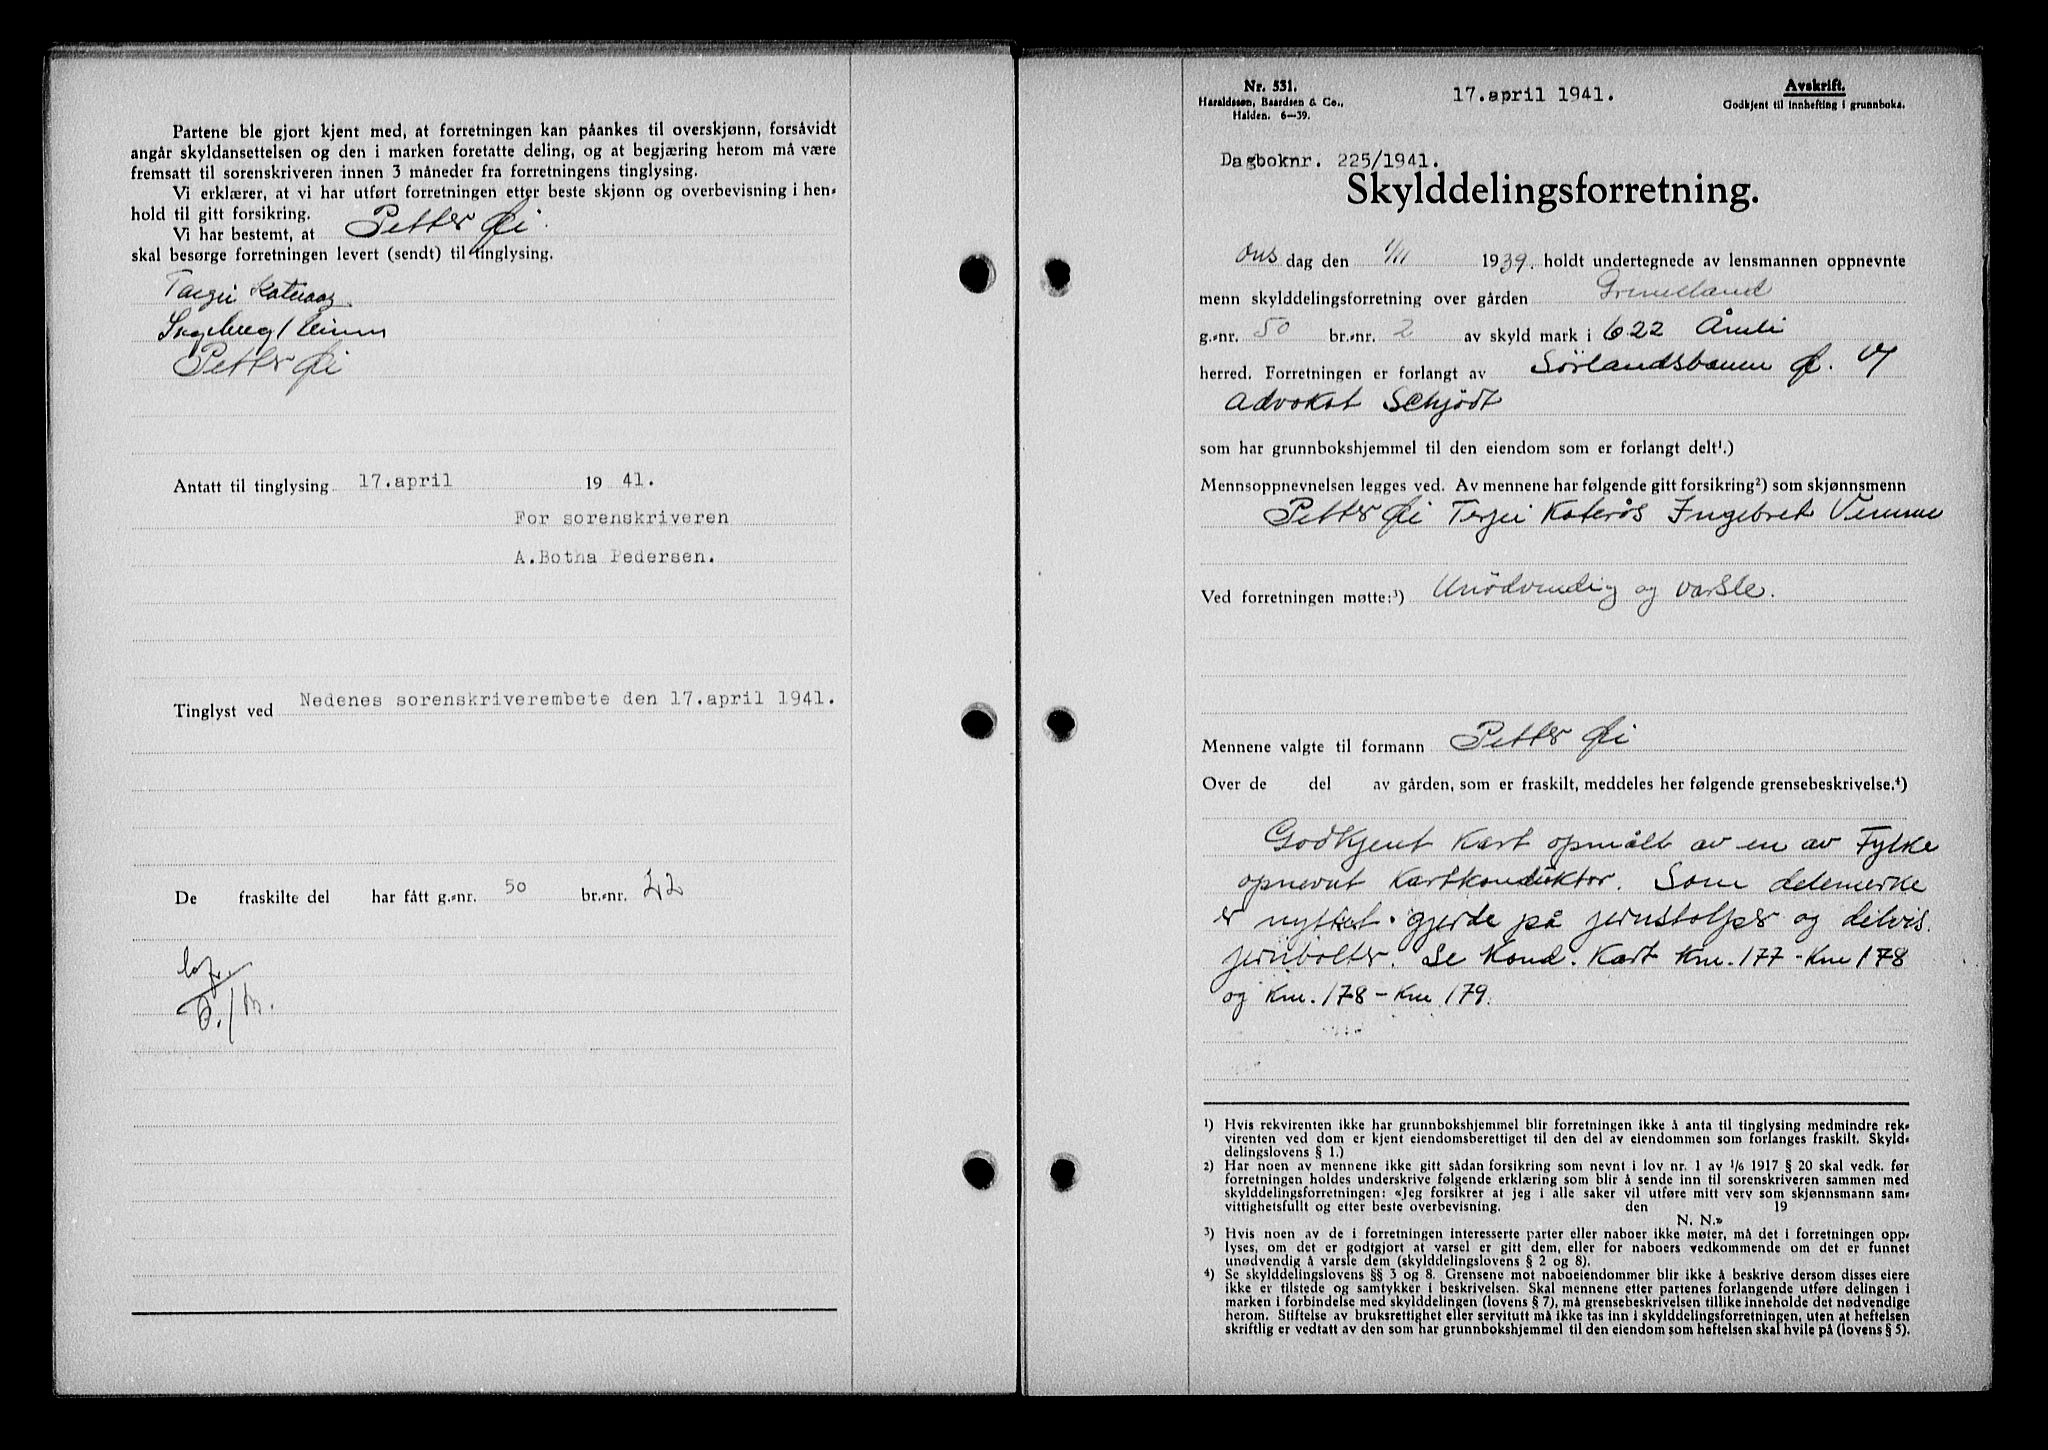 Partene ble gjort kjent med, at forretningen kan påankes til overskjønn, forsåvidt
angår skyldansettelsen og den i marken foretatte deling, og at begjæring herom må være
fremsatt til sorenskriveren innen 3 måneder fra forretningens tinglysing.
Vi erklærer, at vi har utført forretningen etter beste skjønn og overbevisning i hen-
hold til gitt forsikring.
Vi har bestemt, at Petter Øi
skal besørge forretningen levert (sendt) til tinglysing.
Petter Øi
Antatt til tinglysing 17.april 1941.
For sorenskriveren
A.Botha Pedersen.
Tinglyst ved Nedenes sorenskriverembete den 17.april 1941.
De fraskilte del har fått g.-nr. 50 br.-nr. 22
Nr. 531.
Haraldssøn, Baardsen & Co.,
Halden. 6—39.
17.april 1941.
Avskrift.
Godkjent til innhefting i grunnboka.
Dagboknr. 225/1941.
Skylddelingsforretning.
Ons dag den 1/11 1939. holdt undertegnede av lensmannen oppnevnte
menn skylddelingsforretning over gården Grimelland
g.-nr. 50 br.-nr. 2 av skyld mark i 622 Åmli
herred. Forretningen er forlangt av Sørlandsbanen Ø. V/
Advokat Schjødt
som har grunnbokshjemmel til den eiendom som er forlangt delt¹.)
Mennsoppnevnelsen legges ved. Av mennene har følgende gitt forsikring²) som skjønnsmenn
Petter Øi Terjei Katerås Ingebret Vimme
Ved forretningen møtte:³) Unødvendig og varsle.
Mennene valgte til formann Petter Øi
Over de del av gården, som er fraskilt, meddeles her følgende grensebeskrivelse.⁴)
Godkjent Kart opmålt av en av Fylke
opnevnt Kartkonduktør. Som delemerke
er nyttet gjerde på jernstolper og delvis
jernbolter. Se Kond. Kart Km. 177 - Km 178
og Km. 178 - Km 179.
¹) Hvis rekvirenten ikke har grunnbokshjemmel blir forretningen ikke å anta til tinglysing medmindre rek-
virenten ved dom er kjent eiendomsberettiget til den del av eiendommen som forlanges fraskilt. Skyld-
delingslovens § 1.)
²) Har noen av mennene ikke gitt sådan forsikring som nevnt i lov nr. 1 av ¹/6 1917 § 20 skal vedk. før
forretningen holdes underskrive følgende erklæring som blir å sende inn til sorenskriveren sammen med
skylddelingsforretningen: «Jeg forsikrer at jeg i alle saker vil utføre mitt verv som skjønnsmann sam-
vittighetsfullt og etter beste overbevisning. den 19
N. N.»
³) Hvis noen av de i forretningen interesserte parter eller naboer ikke møter, må det i forretningen opp-
lyses, om det er godtgjort at varsel er gitt dem, eller for naboers vedkommende om det er funnet
unødvendig å varsle dem (skylddelingslovens § 2 og 8).
⁴) Se skylddelingslovens §§ 3 og 8. Grensene mot naboeiendommer blir ikke å beskrive dersom disses eiere
ikke er tilstede og samtykker i beskrivelsen. Skal mennene etter partenes forlangende utføre delingen i
marken i forbindelse med skylddelingen (lovens § 7), må grensebeskrivelsen tillike inneholde det nødvendige
herom. Stiftelse av bruksrettighet eller servitutt må ikke tas inn i skylddelingsforretningen, uten at heftelsen
skriftlig er vedtatt av den som har grunnbokshjemmel til den eiendom som heftelsen skal hvile på (lovens § 5).